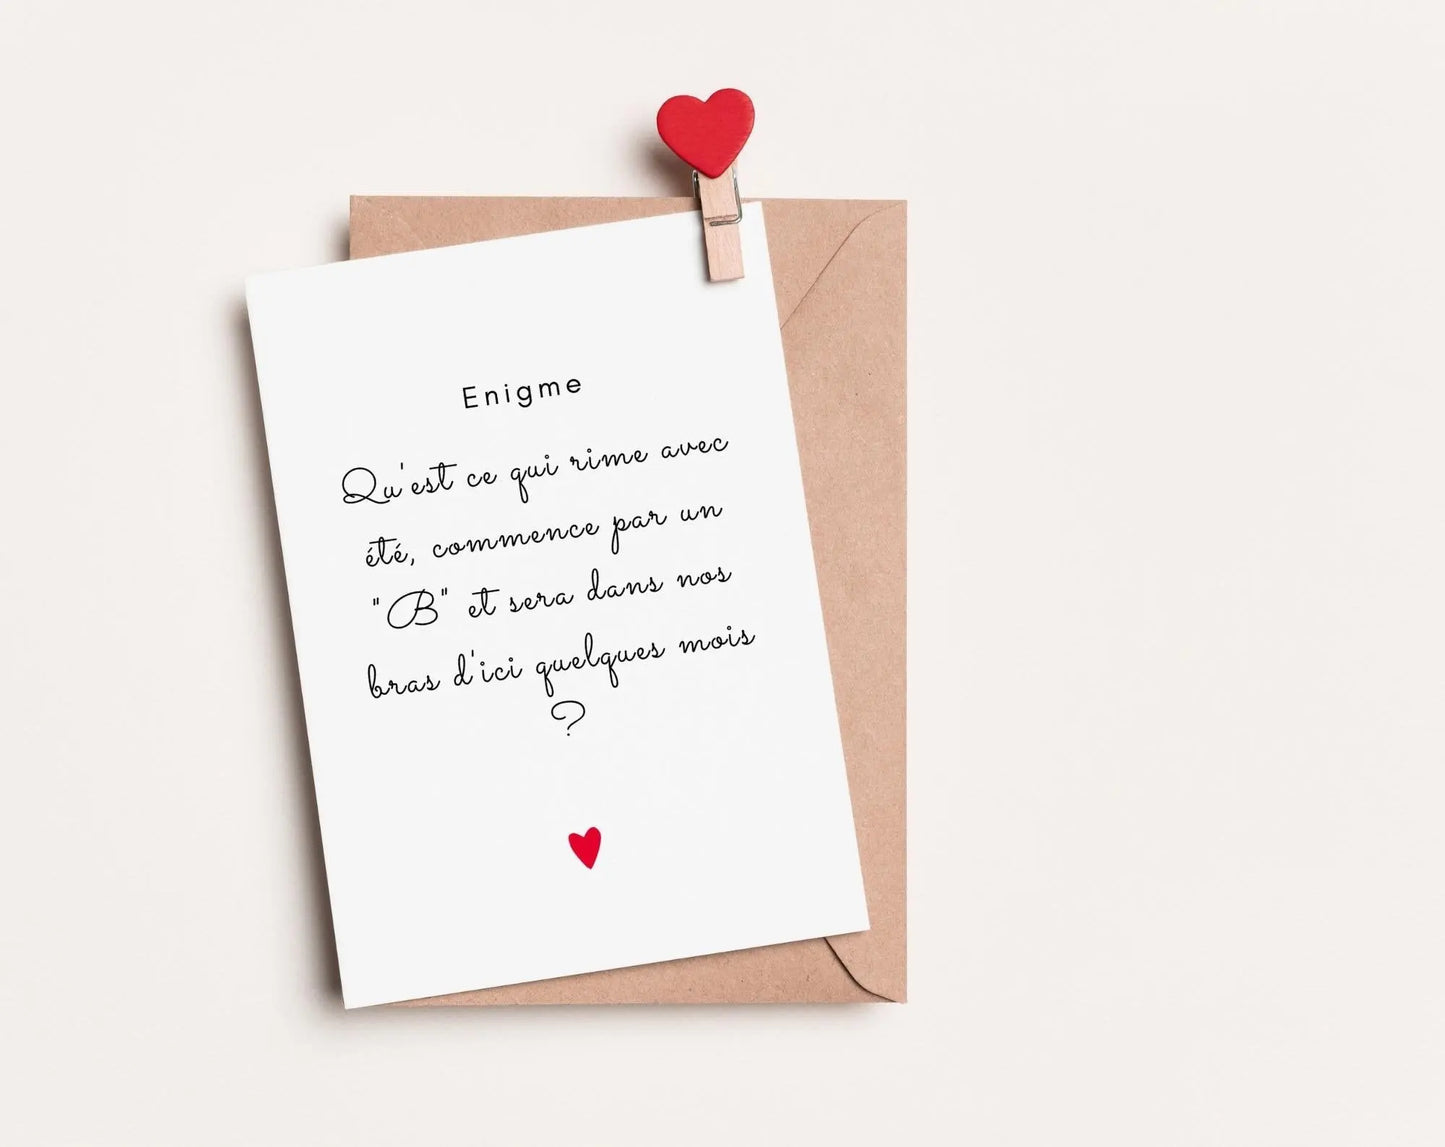 Enigme
Qu'est ce qui rime avec
été, commence par un
"B" et sera dans nos
bras d'ici quelques mois
?